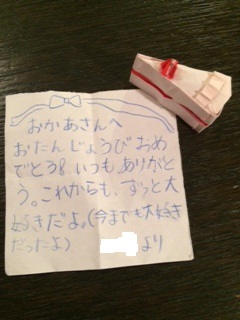 おかあさんへ
おたんじょうびおめ
でとう!いつもありがと
う。これからも、ずっと大
好きだよ。(今までも大好き
だったよ)
より